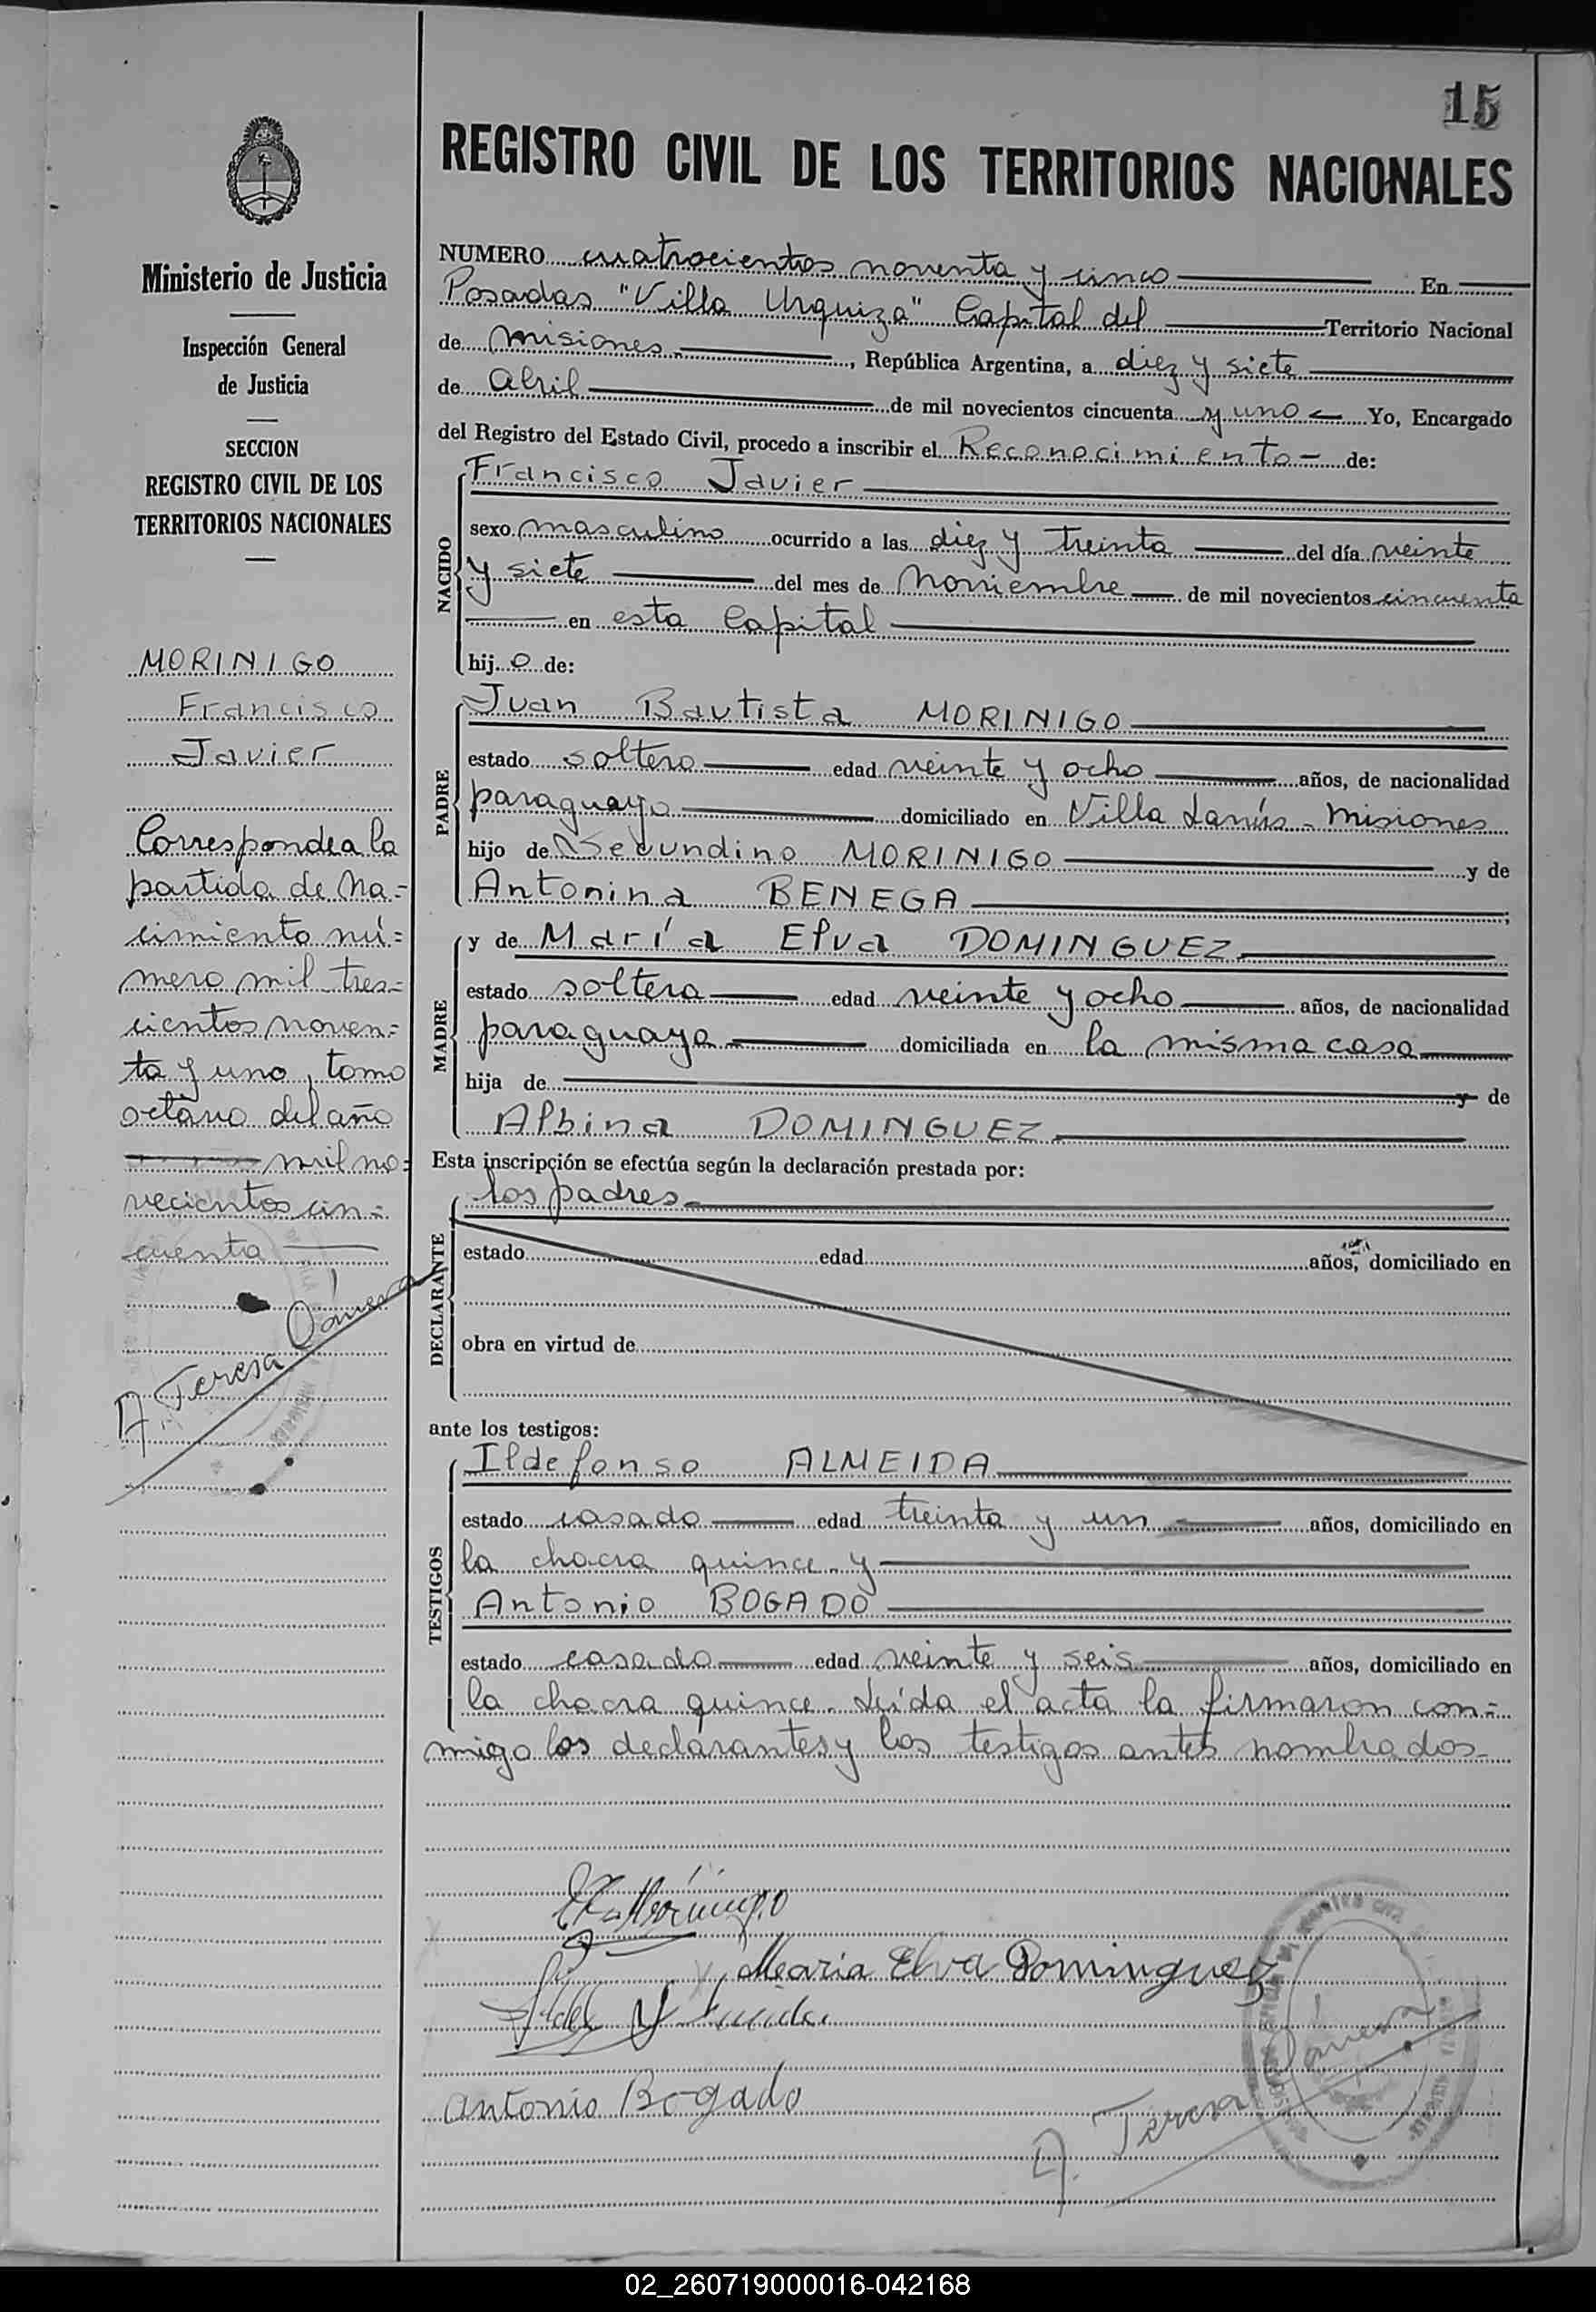 15
REGISTRO CIVIL DE LOS TERRITORIOS NACIONALES
Ministerio de Justicia
Inspección General
de Justicia
SECCION
REGISTRO CIVIL DE LOS
TERRITORIOS NACIONALES
MORINIGO
Francisco
Javier
Corresponde a la
partida de Na=
cimiento nú=
mero mil tres=
cientos noven=
ta y uno, tomo
octavo del año
mil no=
vecientos cin=
cuenta
A. Teresa
NUMERO cuatrocientos noventa y cinco En
Posadas "Villa Urquiza" Capital del Territorio Nacional
de Misiones, República Argentina, a diez y siete
de Abril de mil novecientos cincuenta y uno Yo, Encargado
del Registro del Estado Civil, procedo a inscribir el Reconocimiento de:
NACIDO
Francisco Javier
sexo masculino ocurrido a las diez y treinta del día veinte
y siete del mes de Noviembre de mil novecientos cincuenta
en esta Capital
hijo de:
PADRE
Juan Bautista MORINIGO
estado soltero edad veinte y ocho años, de nacionalidad
paraguayo domiciliado en Villa Lanús - Misiones
hijo de Secundino MORINIGO y de
Antonina BENEGA;
MADRE
y de María Elva DOMINGUEZ
estado soltera edad veinte y ocho años, de nacionalidad
paraguaya domiciliada en la misma casa
hija de y de
Albina DOMINGUEZ
Esta inscripción se efectúa según la declaración prestada por:
DECLARANTE
los padres
estado edad años, domiciliado en
obra en virtud de
ante los testigos:
TESTIGOS
Ildefonso ALMEIDA
estado casado edad treinta y un años, domiciliado en
la chacra quince y
Antonio BOGADO
estado casado edad veinte y seis años, domiciliado en
la chacra quince. Leída el acta la firmaron con=
migo los declarantes y los testigos antes nombrados
Maria Elva Dominguez
Antonio Bogado
A. Teresa
02_260719000016-042168